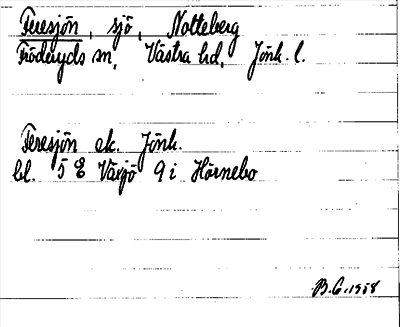 Feresjön, sjö, Notteberg
Fröderyds sn, Västra hd, Jönk. l.
Feresjön ek. Jönk.
bl. 5 E Växjö 9 i Hörnebo
B.G. 1958